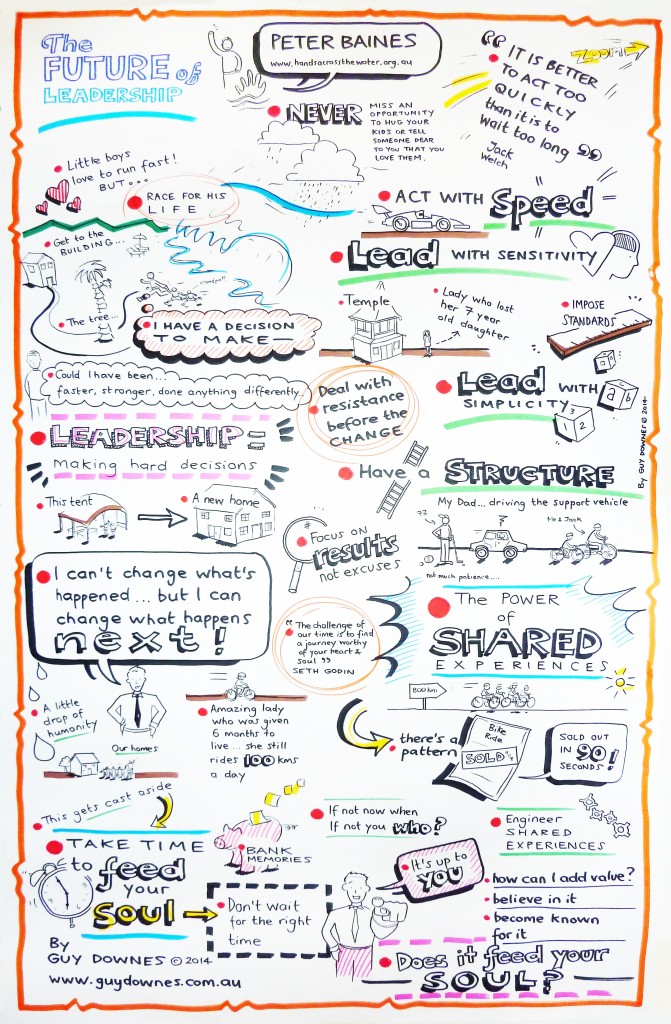 The
FUTURE of
LEADERSHIP
PETER BAINES
www.handsacrossthewater.org.au
NEVER MISS AN
OPPORTUNITY
TO HUG YOUR
KIDS OR TELL
SOMEONE DEAR
TO YOU THAT YOU
LOVE THEM.
"IT IS BETTER
TO ACT TOO
QUICKLY
than it is to
wait too long"
Jack
Welch
ZOOM
Little boys
love to run fast!
BUT....
RACE FOR HIS
LIFE
ACT WITH Speed
Lead WITH SENSITIVITY
Get to the
BUILDING...
The tree...
I HAVE A DECISION
TO MAKE—
Temple
Lady who lost
her 7 year
old daughter
IMPOSE
STANDARDS
Could I have been...
faster, stronger, done anything differently..
Deal with
resistance
before the
CHANGE
Lead WITH
SIMPLICITY
a b
3
1 2
By GUY DOWNES © 2014
LEADERSHIP =
making hard decisions
Have a STRUCTURE
This tent
A new home
Focus on
results
not excuses
My Dad... driving the support vehicle
73
?
Me & Jack
not much patience....
I can't change what's
happened... but I can
change what happens
next!
"The challenge of
our time is to find
a journey worthy
of your heart &
soul"
SETH GODIN
The POWER
of
SHARED
EXPERIENCES
A little
drop of
humanity
Our homes
Amazing lady
who was given
6 months to
live... she still
rides 100 kms
a day
800km
there's a
pattern
Bike
Ride
SOLD
SOLD OUT
IN 90
SECONDS!
This gets cast aside
TAKE TIME
to feed
your
SOUL
BANK
MEMORIES
If not now when
If not you who?
Engineer
SHARED
EXPERIENCES
Don't wait
for the right
time
It's up to
YOU
how can I add value?
believe in it
become known
for it
Does it feed your
SOUL?
By
GUY DOWNES © 2014
www.guydownes.com.au